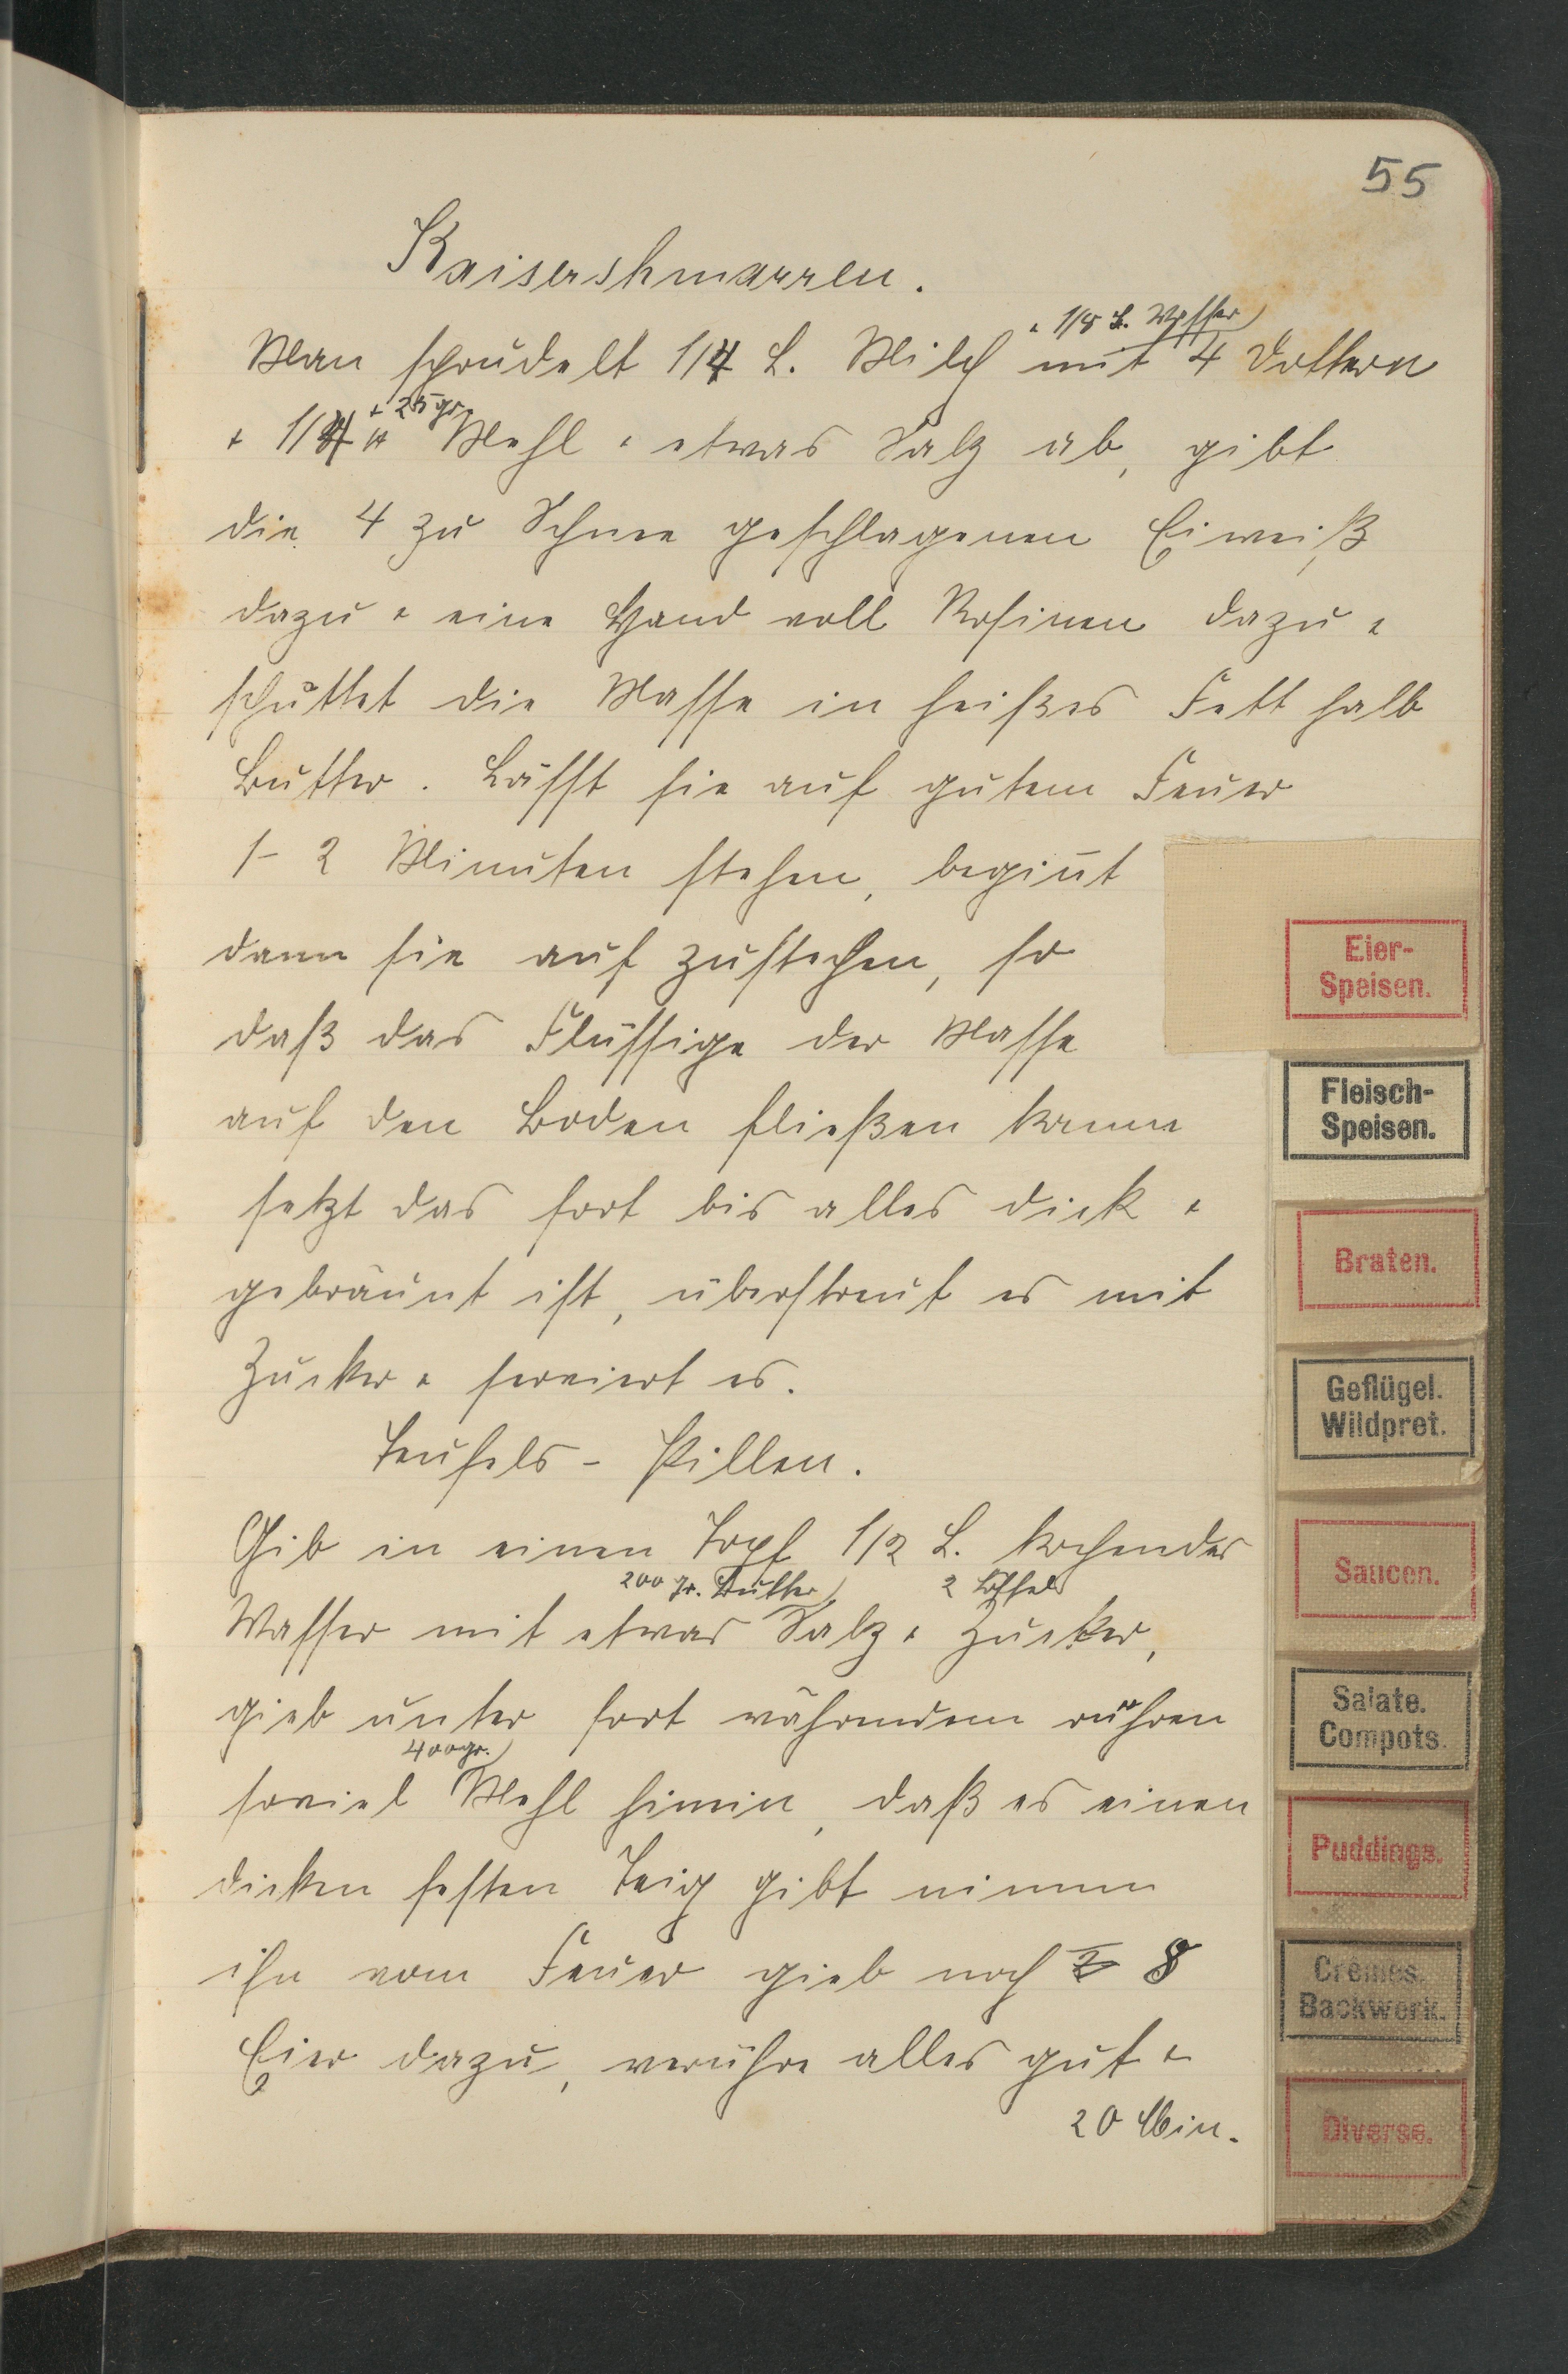 55
Kaisershmarren.
+ 1/8 L. Wasser
Man sprudelt 1/4 L. Milch mit 4 Dottern
+ 25 gr.
+ 1/4 ℔ Mehl + etwas Salz ab, gibt
die 4 zu Schnee geschlagenen Eiweiß
dazu + eine Hand voll Rosinen dazu +
schüttet die Masse in heißes Fett halb
Butter. Lässt sie auf gutem Feuer
1-2 Minuten stehen, begiñt
dann sie auf zustechen, so
daß das Flüssige der Masse
auf den Boden fließen kann
setzt das fort bis alles dick +
gebräunt ist, überstreut es mit
Zucker + serviert es.
Teufels-Pillen.
Gib in einen Topf 1/2 L. kochendes
200 gr. Butter 2 Löffel
Wasser mit etwas Salz + Zucker,
gieb unter fort währendem rühren
400 gr.
soviel Mehl hinein, daß es einen
dicken festen Teig gibt nimm
ihn vom Feuer gieb noch 8
Eier dazu, verrühre alles gut +
20 Min.
Eier-
Speisen.
Fleisch-
Speisen.
Braten.
Geflügel.
Wildpret.
Saucen.
Salate.
Compots.
Puddings.
Crêmes.
Backwerk.
Diverse.